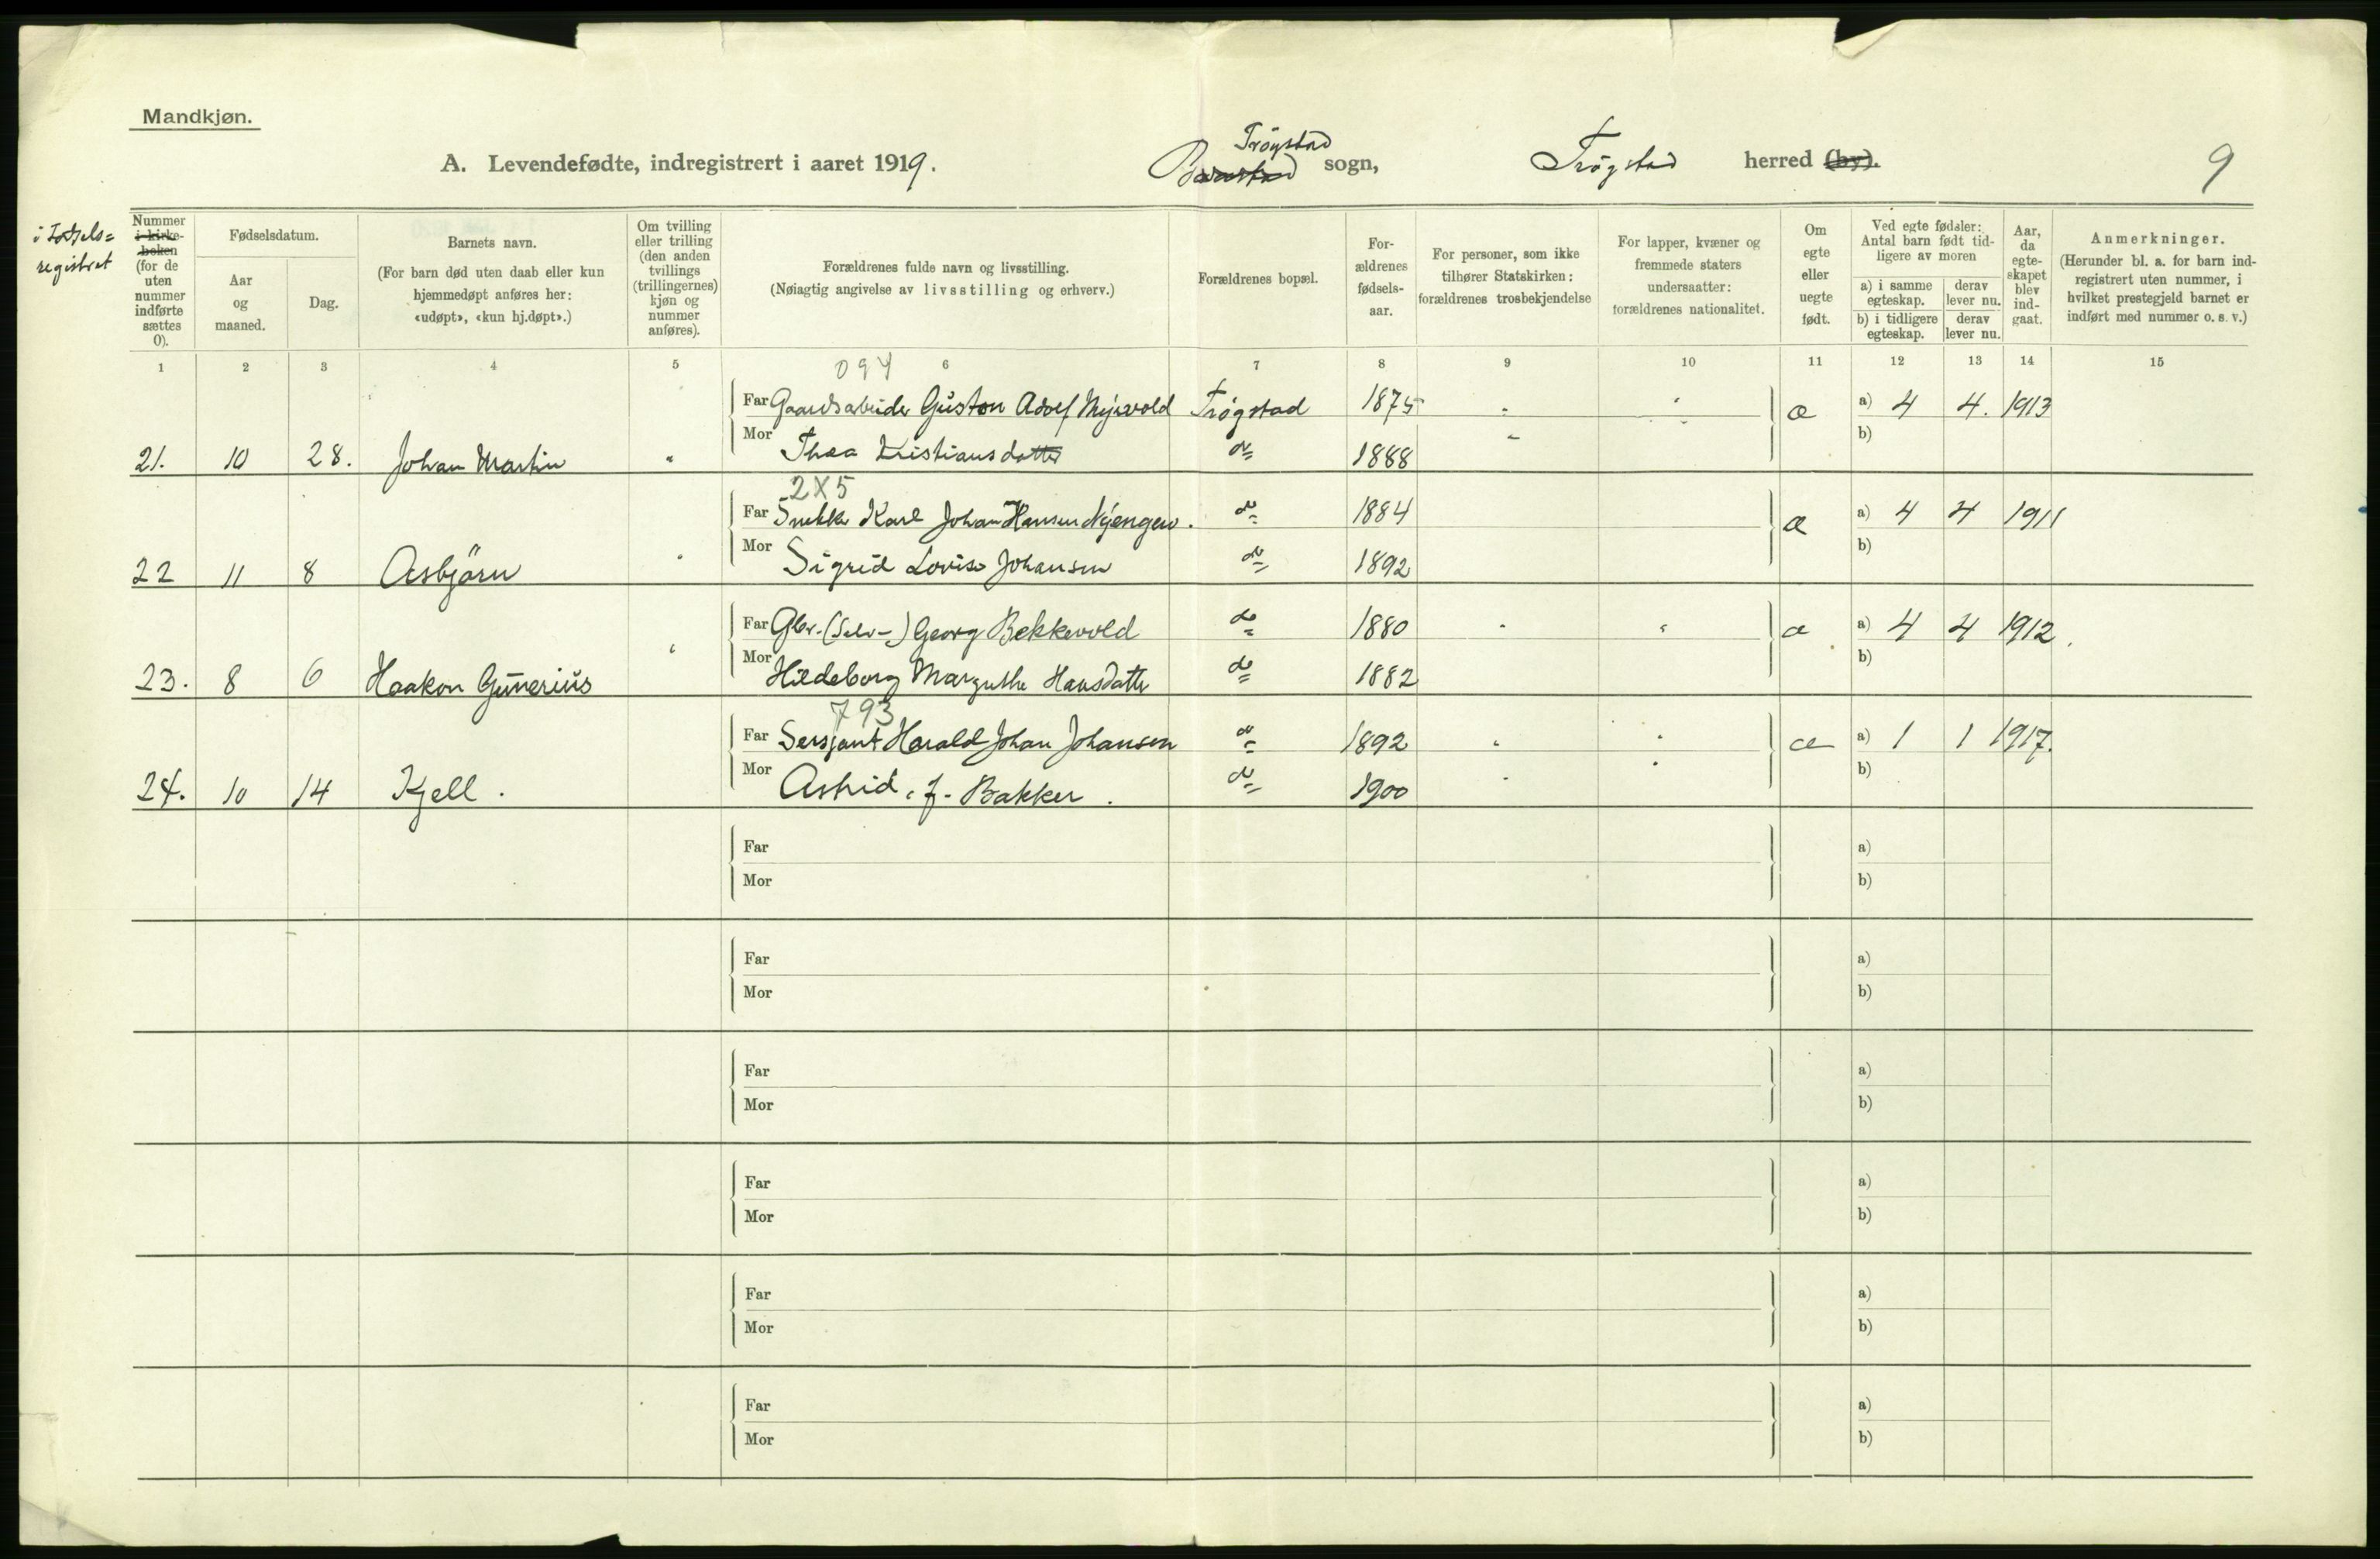 Mandkjøn.
A. Levendefødte, indregistrert i aaret 1919.
Trögstad
sogn,
Trögstad herred (by).
9
i Födsels=
registret
Nummer
i kirke-
boken
(for de
uten
nummer
indførte
sættes
0).
Fødselsdatum.
Aar
og
maaned.
Dag.
Barnets navn.
(For barn død uten daab eller kun
hjemmedøpt anføres her:
«udøpt», «kun hj.døpt».)
Om tvilling
eller trilling
(den anden
tvillings
(trillingernes)
kjøn og
nummer
anføres).
Forældrenes fulde navn og livsstilling.
(Nøiagtig angivelse av livsstilling og erhverv.)
Forældrenes bopæl.
For-
ældrenes
fødsels-
aar.
For personer, som ikke
tilhører Statskirken:
forældrenes trosbekjendelse
For lapper, kvæner og
fremmede staters
undersaatter:
forældrenes nationalitet.
Om
egte
eller
uegte
født.
Ved egte fødsler:
Antal barn født tid-
ligere av moren
a) i samme
egteskap.
b) i tidligere
egteskap.
derav
lever nu.
derav
lever nu.
Aar,
da
egte-
skapet
blev
ind-
gaat.
Anmerkninger.
(Herunder bl. a. for barn ind-
registrert uten nummer, i
hvilket prestegjeld barnet er
indført med nummer o. s. v.)
1 2 3 4 5 6 7 8 9 10 11 12 13 14 15
094
Far Gaardsarbeider Gustav Adolf Myrvold Trögstad 1875 " " æ a) 4 4. 1913
21. 10 28. Johan Martin " Mor Thea Kristiansdatter do 1888 b)
2X5
Far Snekker Karl Johan Hansen Nyengen. do 1884 æ a) 4 4 1911
22 11 8 Asbjörn " Mor Sigrid Lovise Johansen do 1892 b)
Far Gbr. (Selv-) Georg Bekkevold do 1880 " " æ a) 4 4 1912.
23. 8 6 Haakon Gunerius " Mor Hildeborg Margrethe Hansdatter do 1882 b)
793
Far Sersjant Harald Johan Johansen do 1892 " " æ a) 1 1 1917.
24. 10 14 Kjell. Mor Astrid. J. Bakker. do 1900 b)
Far a)
Mor b)
Far a)
Mor b)
Far a)
Mor b)
Far a)
Mor b)
Far a)
Mor b)
Far a)
Mor b)